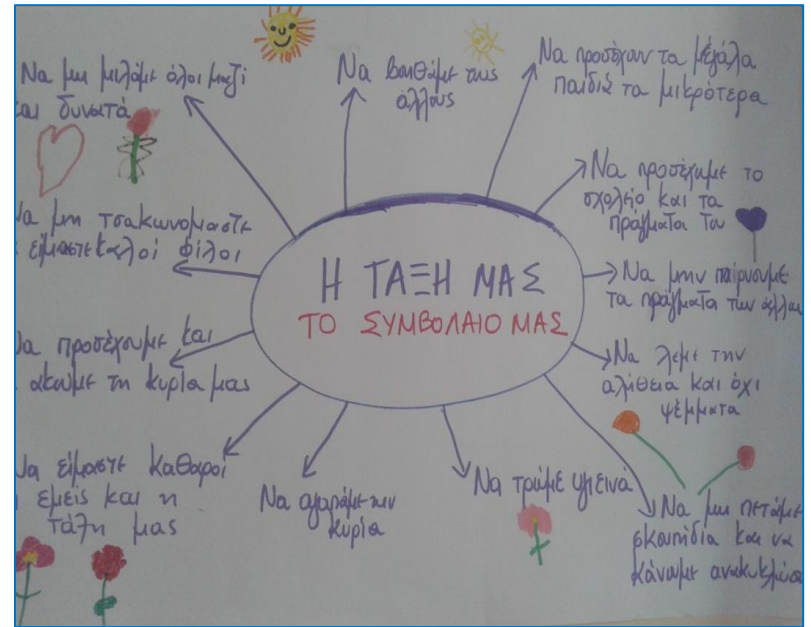 Να μη μιλάμε όλοι μαζί
και δυνατά
Να βοηθάμε τους
άλλους
Να προσέχουν τα μεγάλα
παιδιά τα μικρότερα
Να προσέχουμε το
σχολείο και τα
πράγματα του
Να μην παίρνουμε
τα πράγματα των άλλων
Να λέμε την
αλήθεια και όχι
ψέμματα
Να μη πετάμε
σκουπίδια και να
κάνουμε ανακύκλωση
Να τρώμε υγιεινά
Να αγαπάμε την
κυρία
Να είμαστε καθαροί
εμείς και η
τάξη μας
Να προσέχουμε και
ακούμε τη κυρία μας
Να μη τσακωνόμαστε
είμαστε καλοί φίλοι
Η ΤΑΞΗ ΜΑΣ
ΤΟ ΣΥΜΒΟΛΑΙΟ ΜΑΣ